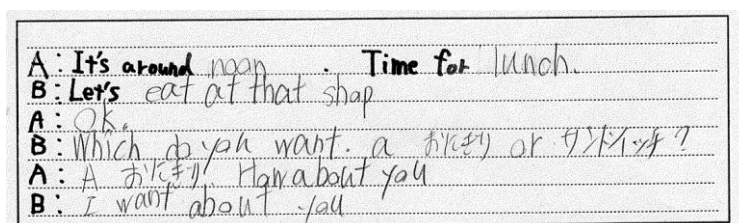 A: It's around noon. Time for lunch.
B: Let's eat at that shop
A: OK.
B: Which do you want. a おにぎり or サンドイッチ?
A: A おにぎり. How about you
B: I want about you